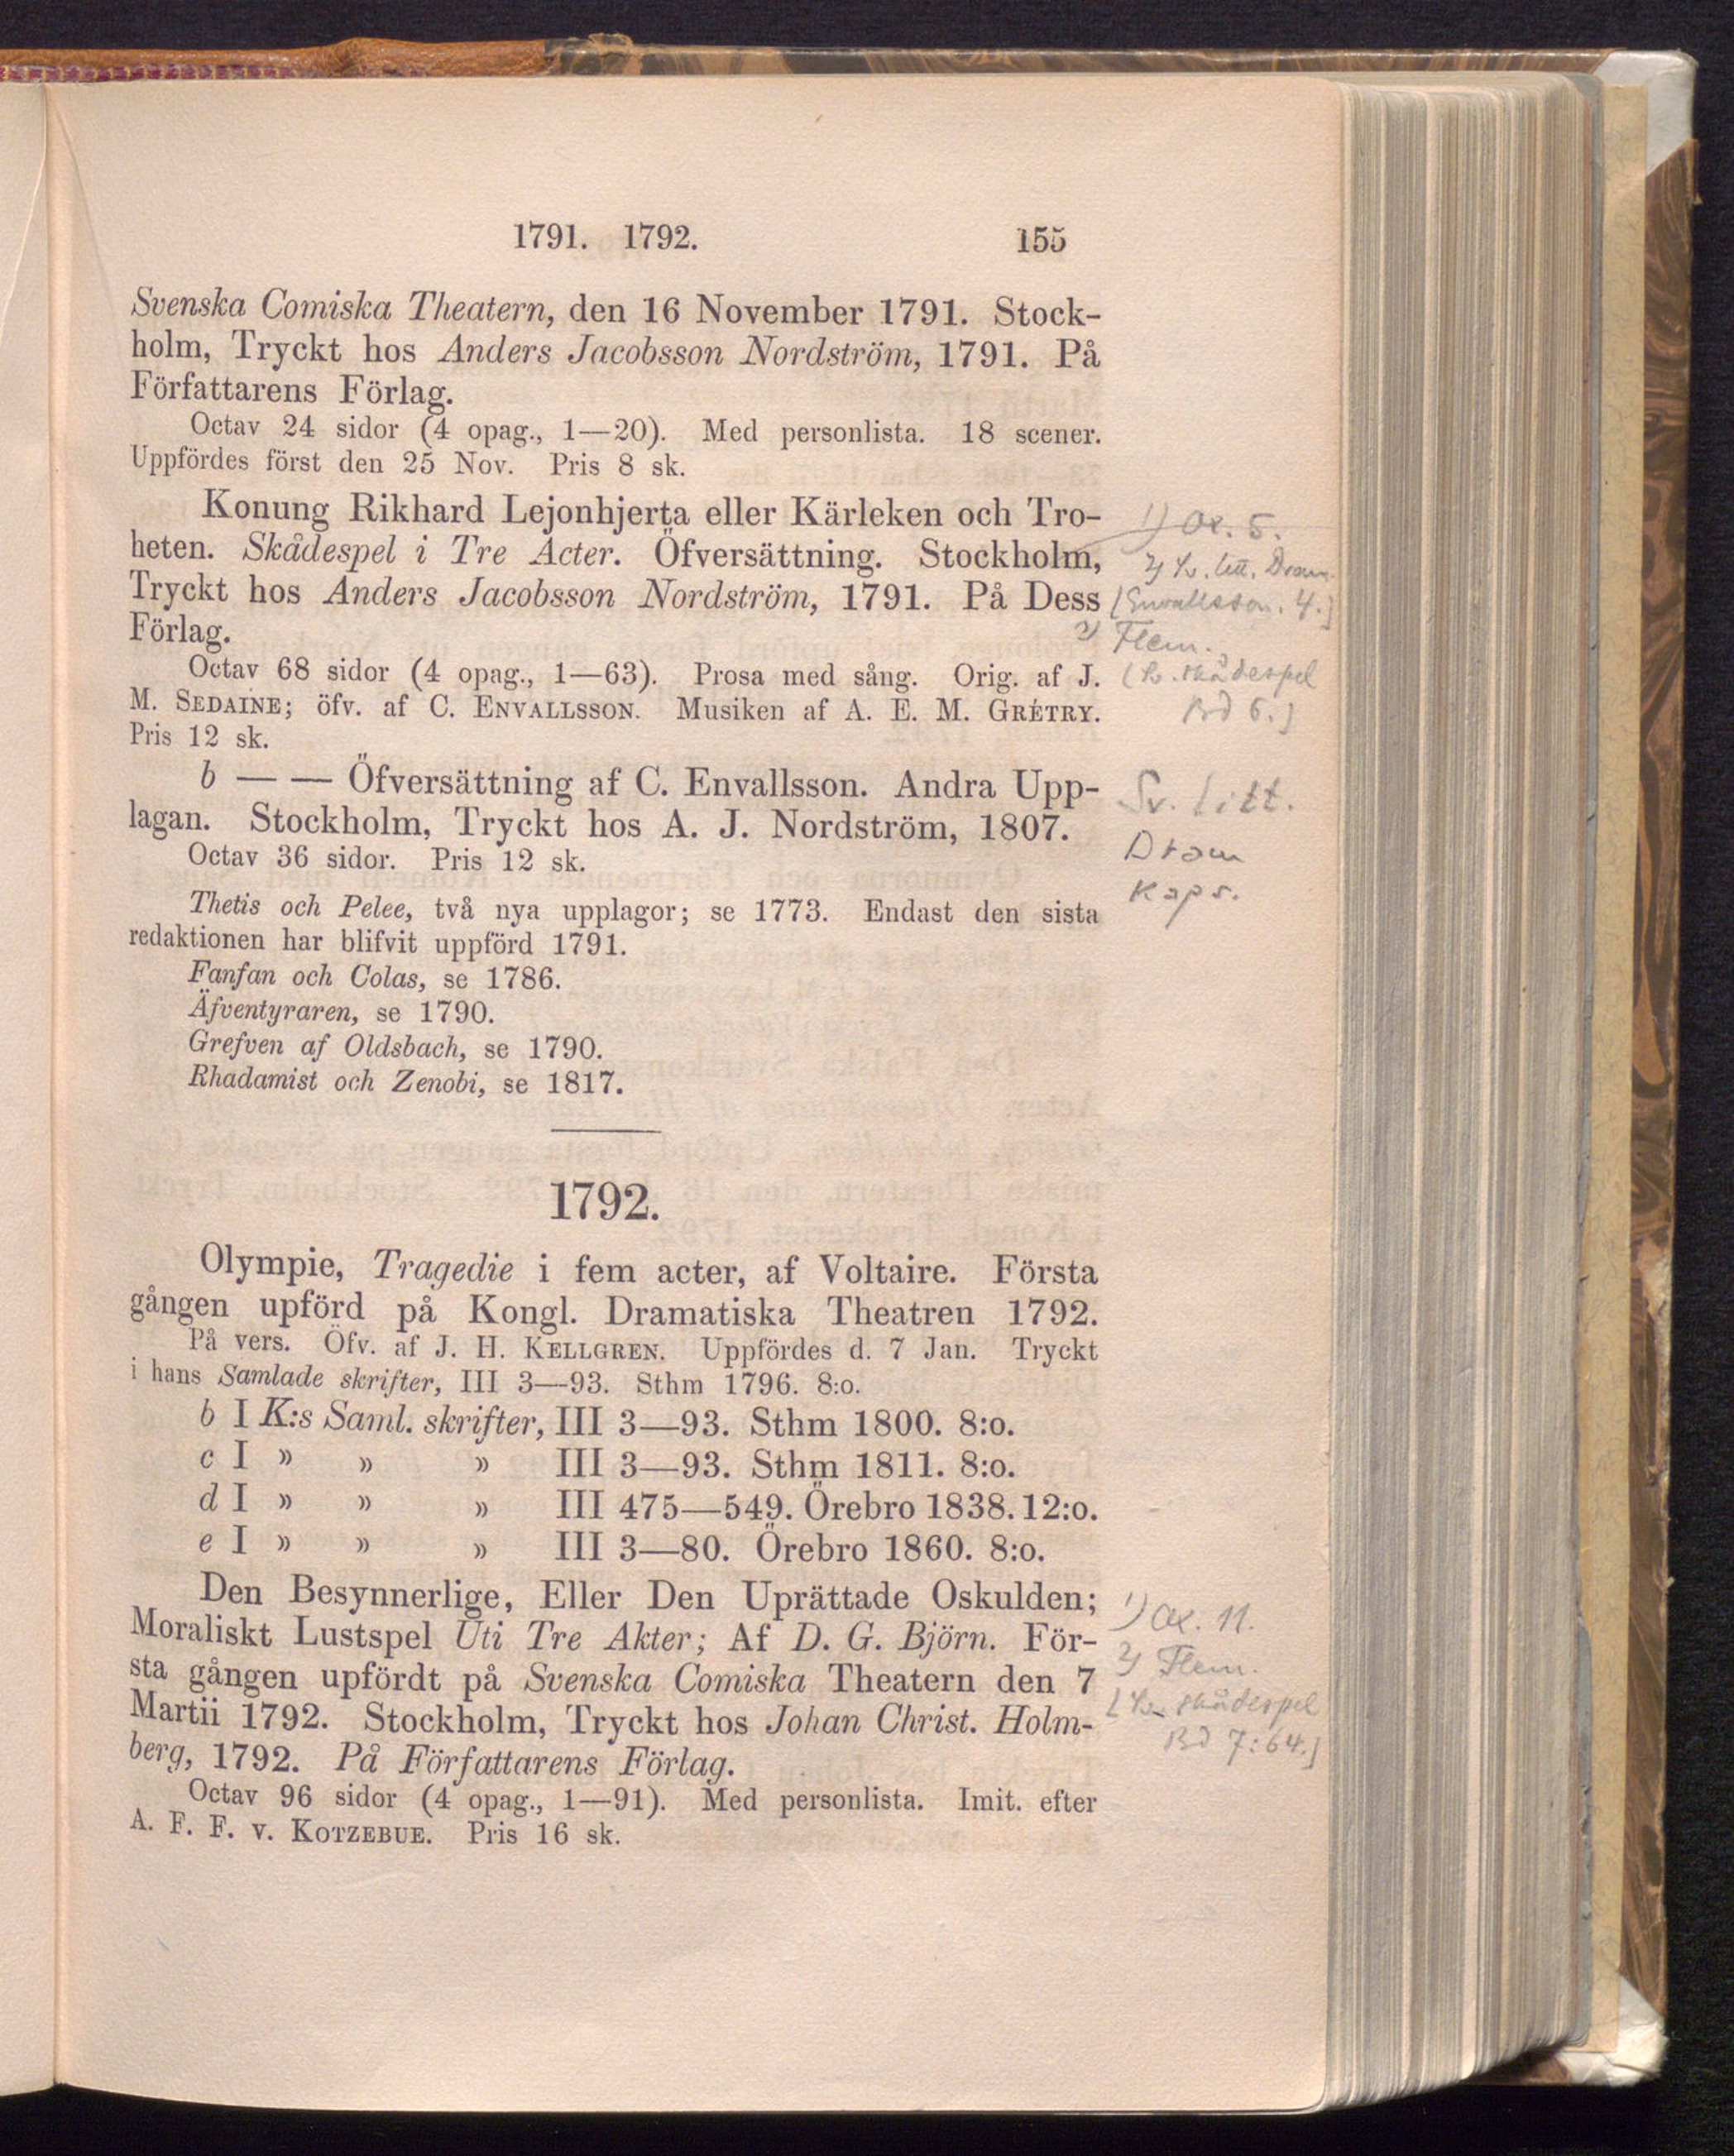 1791. 1792. 155
Svenska Comiska Theatern, den 16 November 1791. Stock-
holm, Tryckt hos Anders Jacobsson Nordström, 1791. På
Författarens Förlag.
Octav 24 sidor (4 opag., 1—20). Med personlista. 18 scener.
Uppfördes först den 25 Nov. Pris 8 sk.
Konung Rikhard Lejonhjerta eller Kärleken och Tro-
heten. Skådespel i Tre Acter. Öfversättning. Stockholm,
Tryckt hos Anders Jacobsson Nordström, 1791. På Dess
Förlag.
Octav 68 sidor (4 opag., 1—63). Prosa med sång. Orig. af J.
M. SEDAINE; öfv. af C. ENVALLSSON. Musiken af A. E. M. GRÉTRY.
Pris 12 sk.
b — — Öfversättning af C. Envallsson. Andra Upp-
lagan. Stockholm, Tryckt hos A. J. Nordström, 1807.
Octav 36 sidor. Pris 12 sk.
Thetis och Pelee, två nya upplagor; se 1773. Endast den sista
redaktionen har blifvit uppförd 1791.
Fanfan och Colas, se 1786.
Äfventyraren, se 1790.
Grefven af Oldsbach, se 1790.
Rhadamist och Zenobi, se 1817.
1792.
Olympie, Tragedie i fem acter, af Voltaire. Första
gången upförd på Kongl. Dramatiska Theatren 1792.
På vers. Öfv. af J. H. KELLGREN. Uppfördes d. 7 Jan. Tryckt
i hans Samlade skrifter, III 3—93. Sthm 1796. 8:o.
b I K:s Saml. skrifter, III 3—93. Sthm 1800. 8:o.
c I » » » III 3—93. Sthm 1811. 8:o.
d I » » » III 475—549. Örebro 1838. 12:o.
e I » » » III 3—80. Örebro 1860. 8:o.
Den Besynnerlige, Eller Den Uprättade Oskulden;
Moraliskt Lustspel Uti Tre Akter; Af D. G. Björn. För-
sta gången upfördt på Svenska Comiska Theatern den 7
Martii 1792. Stockholm, Tryckt hos Johan Christ. Holm-
berg, 1792. På Författarens Förlag.
Octav 96 sidor (4 opag., 1—91). Med personlista. Imit. efter
A. F. F. v. KOTZEBUE. Pris 16 sk.
1) 5.
2) Sv. litt. Dram.
[Envallsson. 4.]
2) Flem.
(Sv. skådespel
Bd 6.)
Sv. litt.
Dram
Kaps.
1) 11.
2) Flem.
[Sv. skådespel
Bd 7:64.]